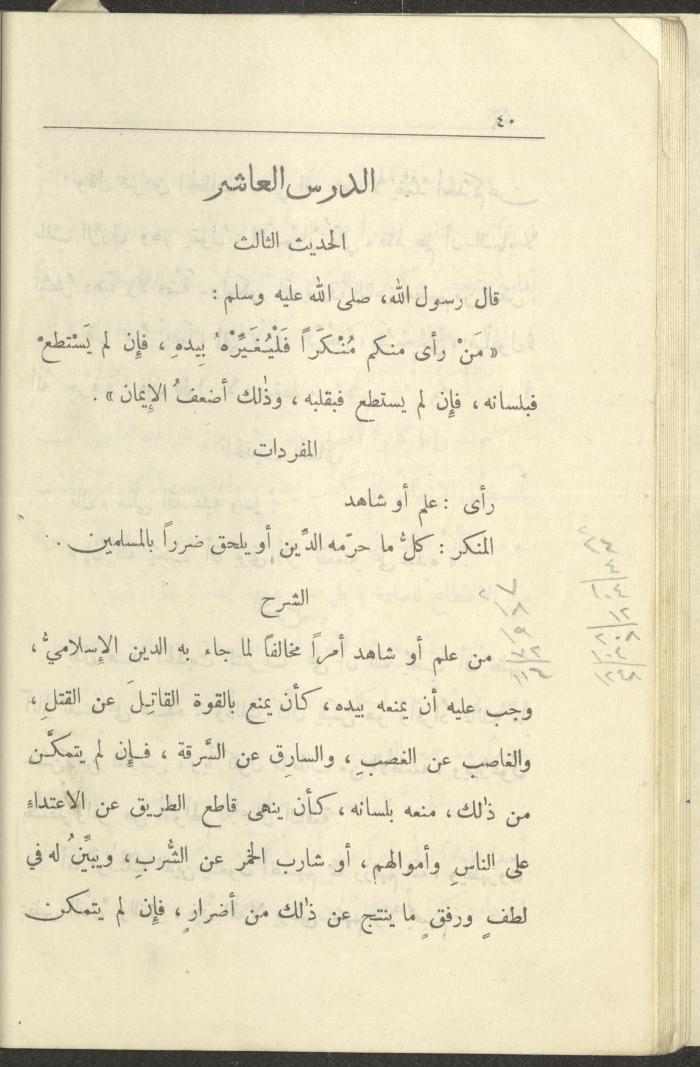 ٤٠
الدرس العاشر
الحديث الثالث
قال رسول الله، صلى الله عليه وسلم :
« مَنْ رأى منكم مُنْكَرَاً فَلْيُغَيِّرْهُ بِيدهِ ، فإِن لم يَسْتطعْ
فبلسانه ، فإِن لم يستطع فبقلبه ، وذٰلك أضعفُ الإِيمان » .
المفردات
رأى : علم أو شاهد
المنكر : كلُّ ما حرّمه الدِّين أو يلحق ضرراً بالمسلمين .
الشرح
من علم أو شاهد أمراً مخالفاً لما جاء به الدين الإِسلاميُّ ،
وجب عليه أن يمنعه بيده ، كأن يمنع بالقوة القاتِلَ عن القتلِ ،
والغاصب عن الغصبِ ، والسارِق عن السَّرقة ، فإِن لم يتمكَّن
من ذٰلك ، منعه بلسانه ، كأن ينهى قاطع الطريق عن الاعتداءِ
على الناسِ وأموالهم ، أو شارب الخمر عن الشُّربِ ، ويبيِّنُ له في
لطفٍ ورفقٍ ما ينتج عن ذٰلك من أضرارٍ ، فإِن لم يتمكن